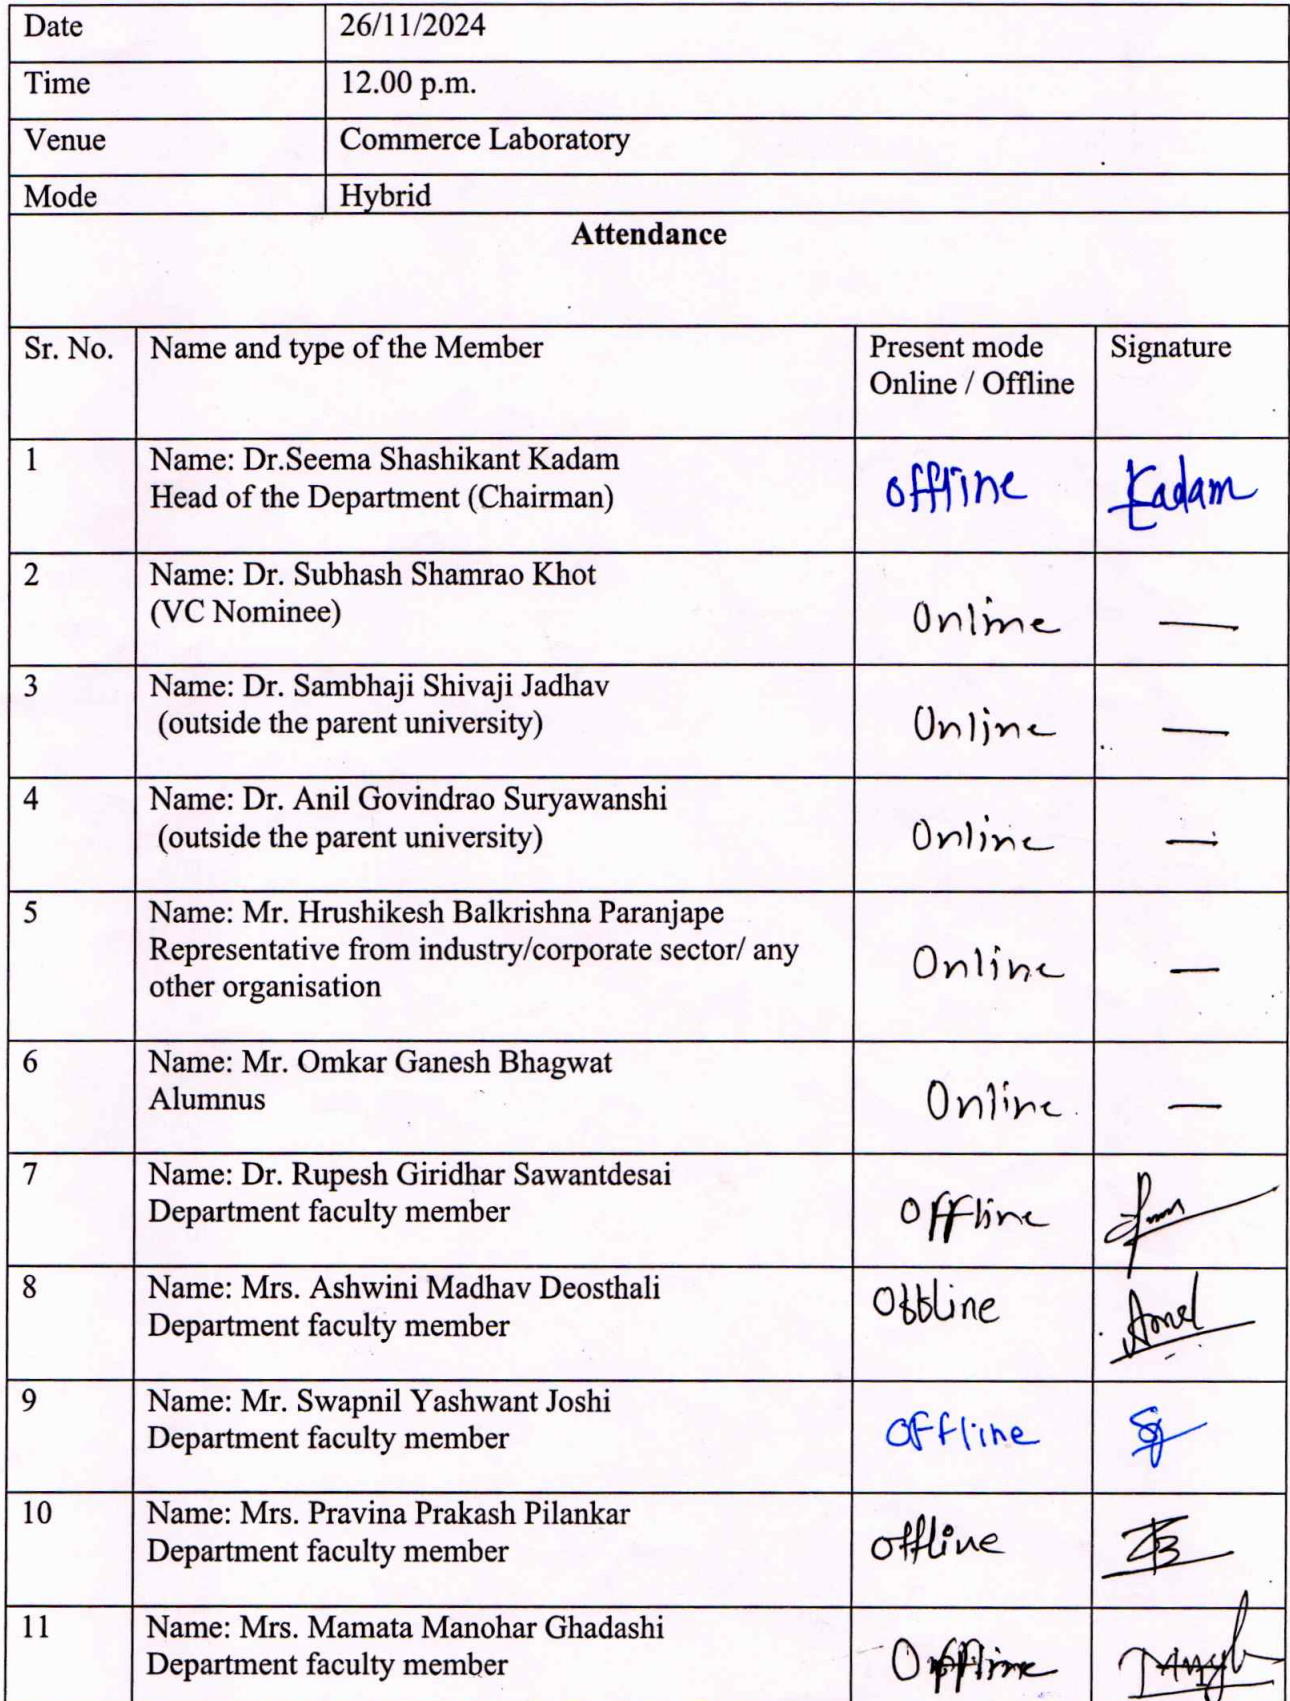 Date 26/11/2024
Time 12.00 p.m.
Venue Commerce Laboratory
Mode Hybrid
Attendance
Sr. No. Name and type of the Member Present mode Signature
Online / Offline
1 Name: Dr.Seema Shashikant Kadam
Head of the Department (Chairman) offline Kadam
2 Name: Dr. Subhash Shamrao Khot
(VC Nominee) Online —
3 Name: Dr. Sambhaji Shivaji Jadhav
(outside the parent university) Online —
4 Name: Dr. Anil Govindrao Suryawanshi
(outside the parent university) Online —
5 Name: Mr. Hrushikesh Balkrishna Paranjape
Representative from industry/corporate sector/ any Online —
other organisation
6 Name: Mr. Omkar Ganesh Bhagwat
Alumnus Online —
7 Name: Dr. Rupesh Giridhar Sawantdesai
Department faculty member Offline
8 Name: Mrs. Ashwini Madhav Deosthali Offline
Department faculty member
9 Name: Mr. Swapnil Yashwant Joshi
Department faculty member Offline
10 Name: Mrs. Pravina Prakash Pilankar
Department faculty member offline
11 Name: Mrs. Mamata Manohar Ghadashi
Department faculty member Offline